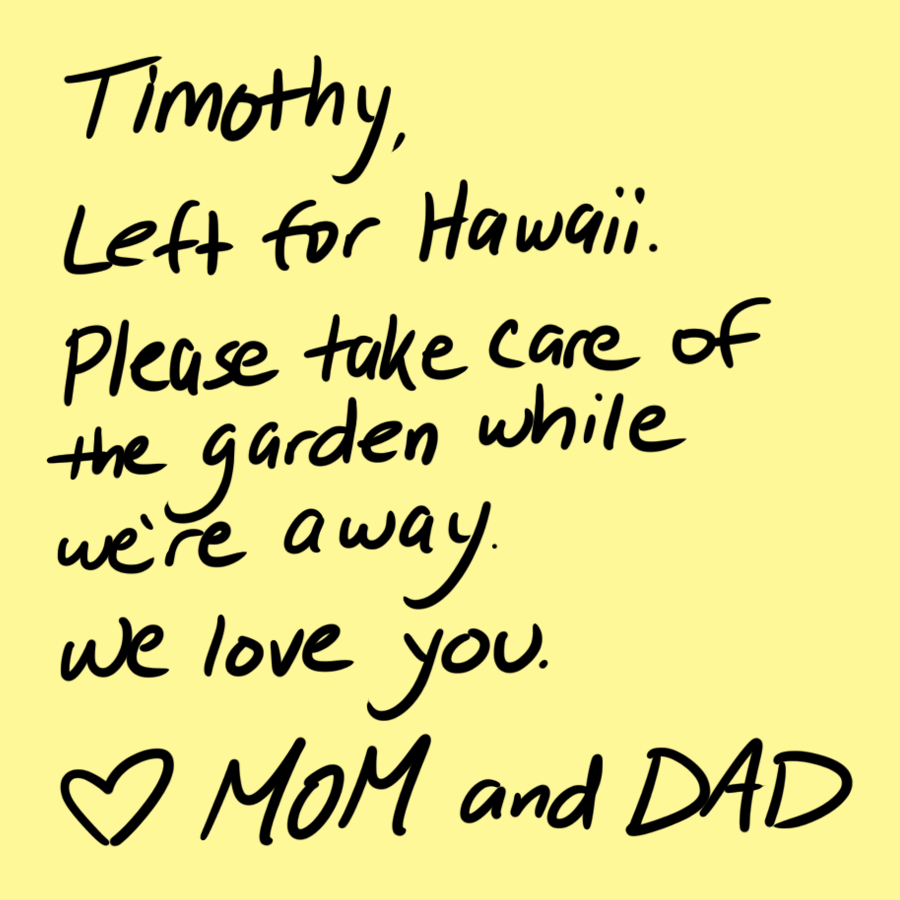 Timothy,
Left for Hawaii.
Please take care of
the garden while
we're away.
We love you.
♡ MOM and DAD